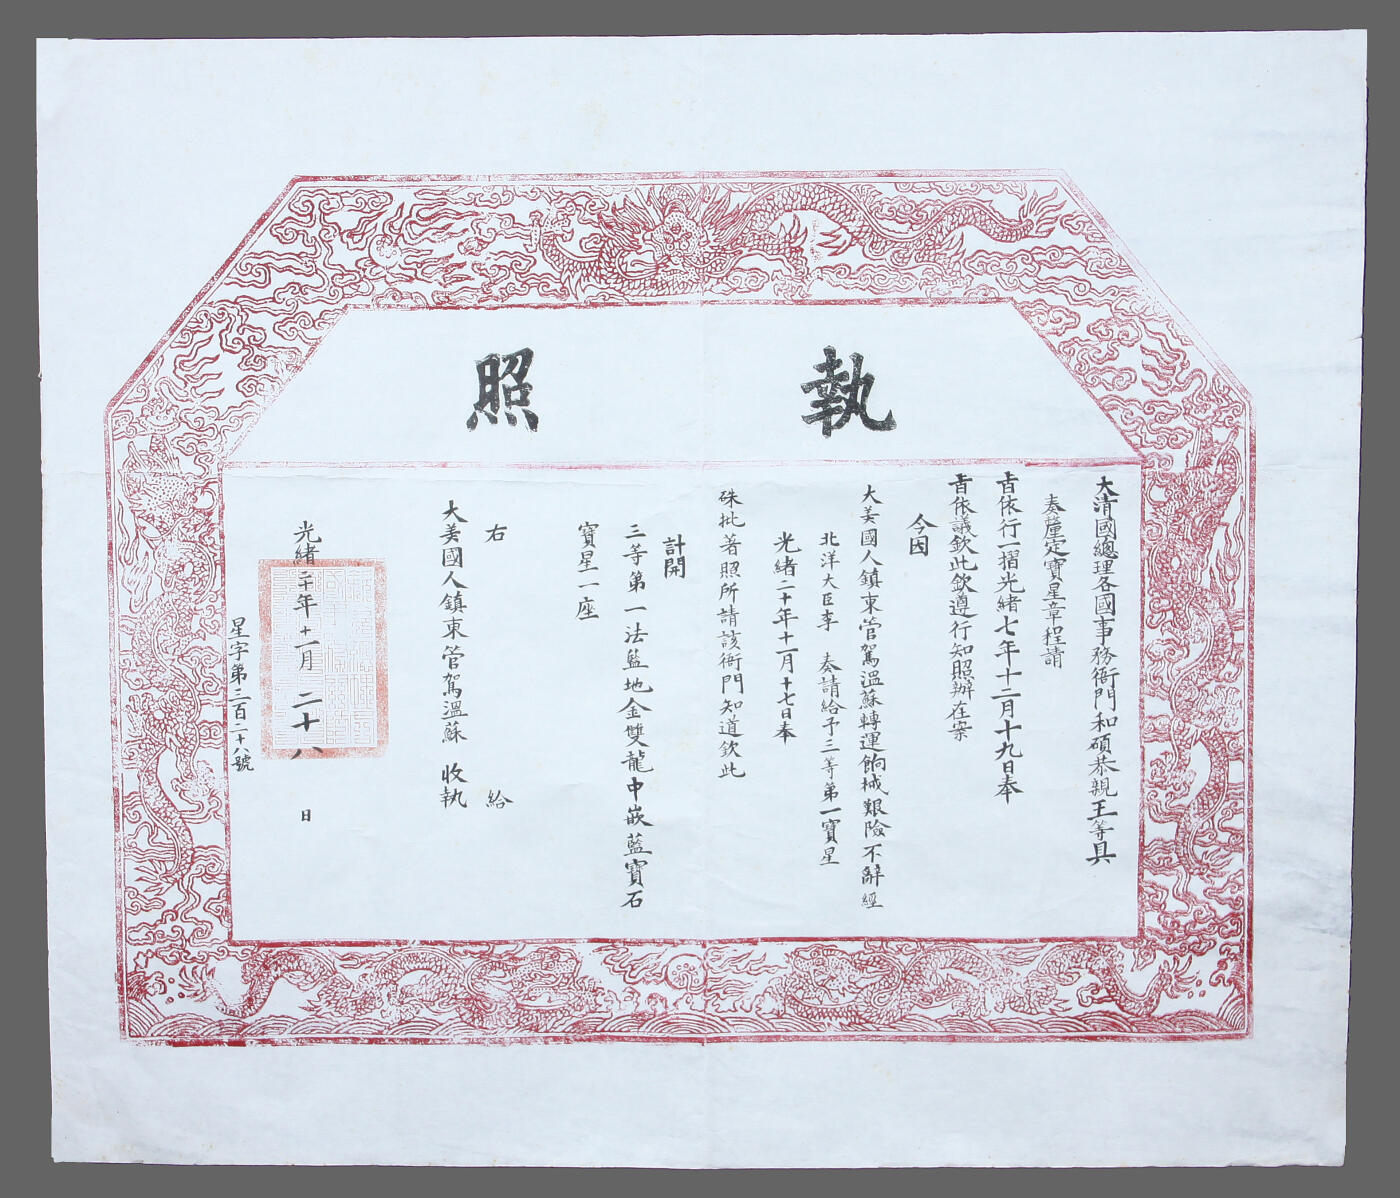 執照
大清國總理各國事務衙門和碩恭親王等具
奏釐定寶星章程請
旨依行一摺光緒七年十二月十九日奉
旨依議欽此欽遵行知照辦在案
今因
大美國人鎮東管駕溫蘇轉運餉械艱險不辭經
北洋大臣李 奏請給予三等第一寶星
光緒二十年十一月十七日奉
硃批著照所請該衙門知道欽此
計開
三等第一法藍地金雙龍中嵌藍寶石
寶星一座
右 給
大美國人鎮東管駕溫蘇 收執
光緒二十年十一月二十八日
星字第三百二十八號